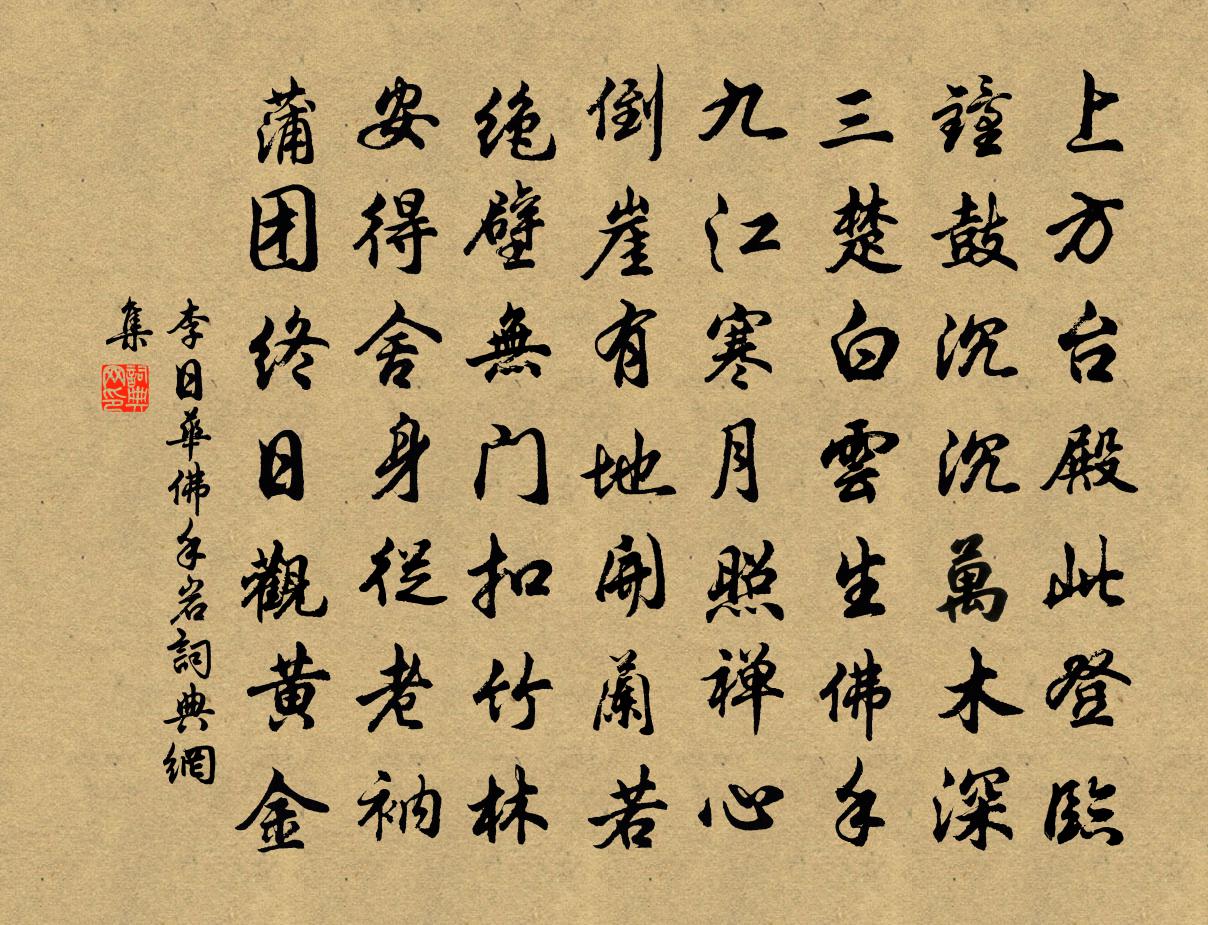 上方台殿此登臨
鐘鼓沉沉萬木深
三楚白雲生佛手
九江寒月照禅心
倒崖有地開蘭若
绝壁無门扣竹林
安得舍身從老衲
蒲团终日觀黄金
李日華佛手岩詞典網
集
詞典
网印